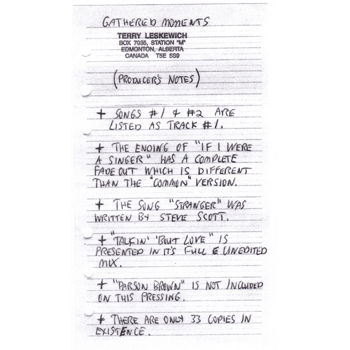 GATHERED MOMENTS
TERRY LESKEWICH
BOX 7035, STATION "M"
EDMONTON, ALBERTA
CANADA T5E 5S9
(PRODUCER'S NOTES)
+ SONGS #1 & #2 ARE
LISTED AS TRACK #1.
+ THE ENDING OF "IF I WERE
A SINGER" HAS A COMPLETE
FADE OUT WHICH IS DIFFERENT
THAN THE "COMMON" VERSION.
+ THE SONG "STRANGER" WAS
WRITTEN BY STEVE SCOTT.
+ "TALKIN' 'BOUT LOVE" IS
PRESENTED IN IT'S FULL & UNEDITED
MIX.
+ "PARSON BROWN" IS NOT INCLUDED
ON THIS PRESSING.
+ THERE ARE ONLY 33 COPIES IN
EXISTENCE.